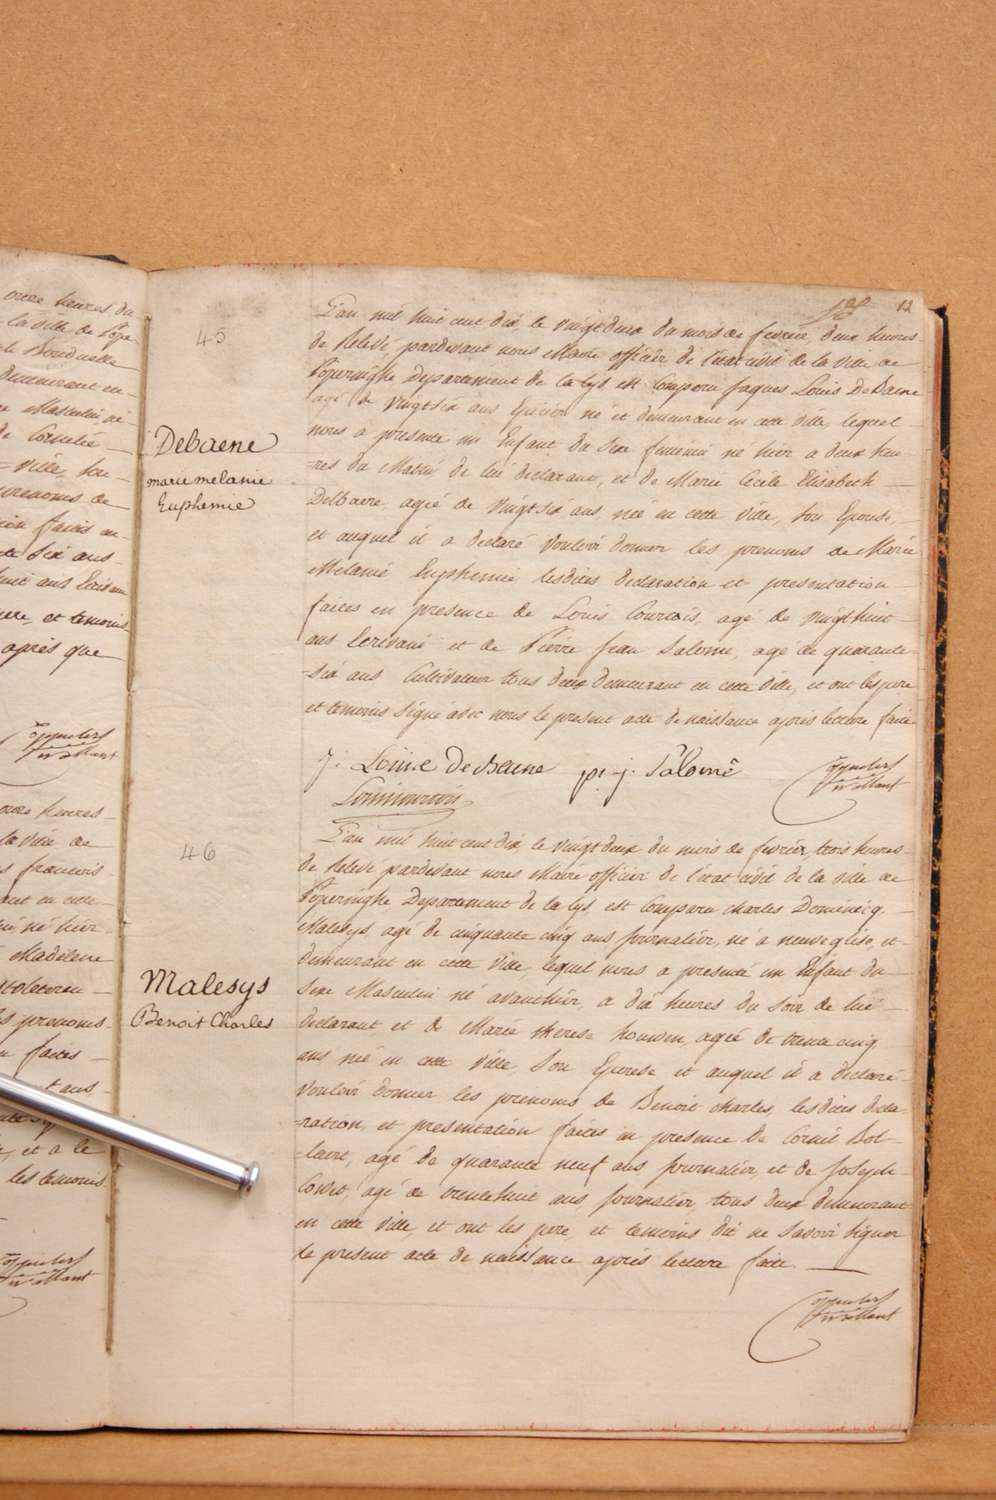 12
45
Debaene
marie melanie
Euphemie
L'an mil huit cent dix le vingtdeux du mois de fevrier, deux heures
de Relevé pardevant nous Maire officier de l'état civil de la ville de
Poperinghe Departement de la Lys est Comparu Jaques Louis DeBaene
agé de vingtsix ans Epicier né et demeurant en cette ville lequel
nous a presenté un Enfant du Sexe feminin né hier a deux heu-
-res du Matin de lui declarant, et de Marie Cécile Elisabeth
Delbaere, agée de vingtsix ans, née en cette ville, Son Epouse,
et auquel il a declaré vouloir donner les prenoms de Marie
Mélanie Euphemie lesdites declaration et presentation
faites en presence de Louis Courtois, agé de vingthuit
ans Ecrivain et de Pierre Jean Salome, agé de quarante
-six ans Cultivateur tous deux demeurant en cette ville, et ont les pere
et temoins signé avec nous le present acte de naissance après lecture faite
J. Louise DeBaene p. j. Salomé
46
Malesys
Benoit Charles
L'an mil huit cent dix le vingtdeux du mois de fevrier, trois heures
de Relevé pardevant nous Maire officier de l'état civil de la ville de
Poperinghe Departement de la Lys est Comparu Charles Dominicq
Malesys, agé de cinquante cinq ans journalier, né a neuveglise, et
demeurant en cette ville, lequel nous a presenté un Enfant du
Sexe Masculin né avanthier, a dix heures du Soir de lui
declarant et de Marie therese houwen, agée de trente cinq
ans née en cette ville Son Epouse et auquel il a declaré
vouloir donner les prenoms de Benoit Charles, lesdites decla-
-ration, et presentation faites en presence de Cornil Bol-
-laert, agé de quarante neuf ans journalier, et de Joseph
agé de trentehuit ans, journalier, tous deux demeurant
en cette ville, et ont les pere, et temoins dit ne savoir signer
le present acte de naissance après lecture faite.